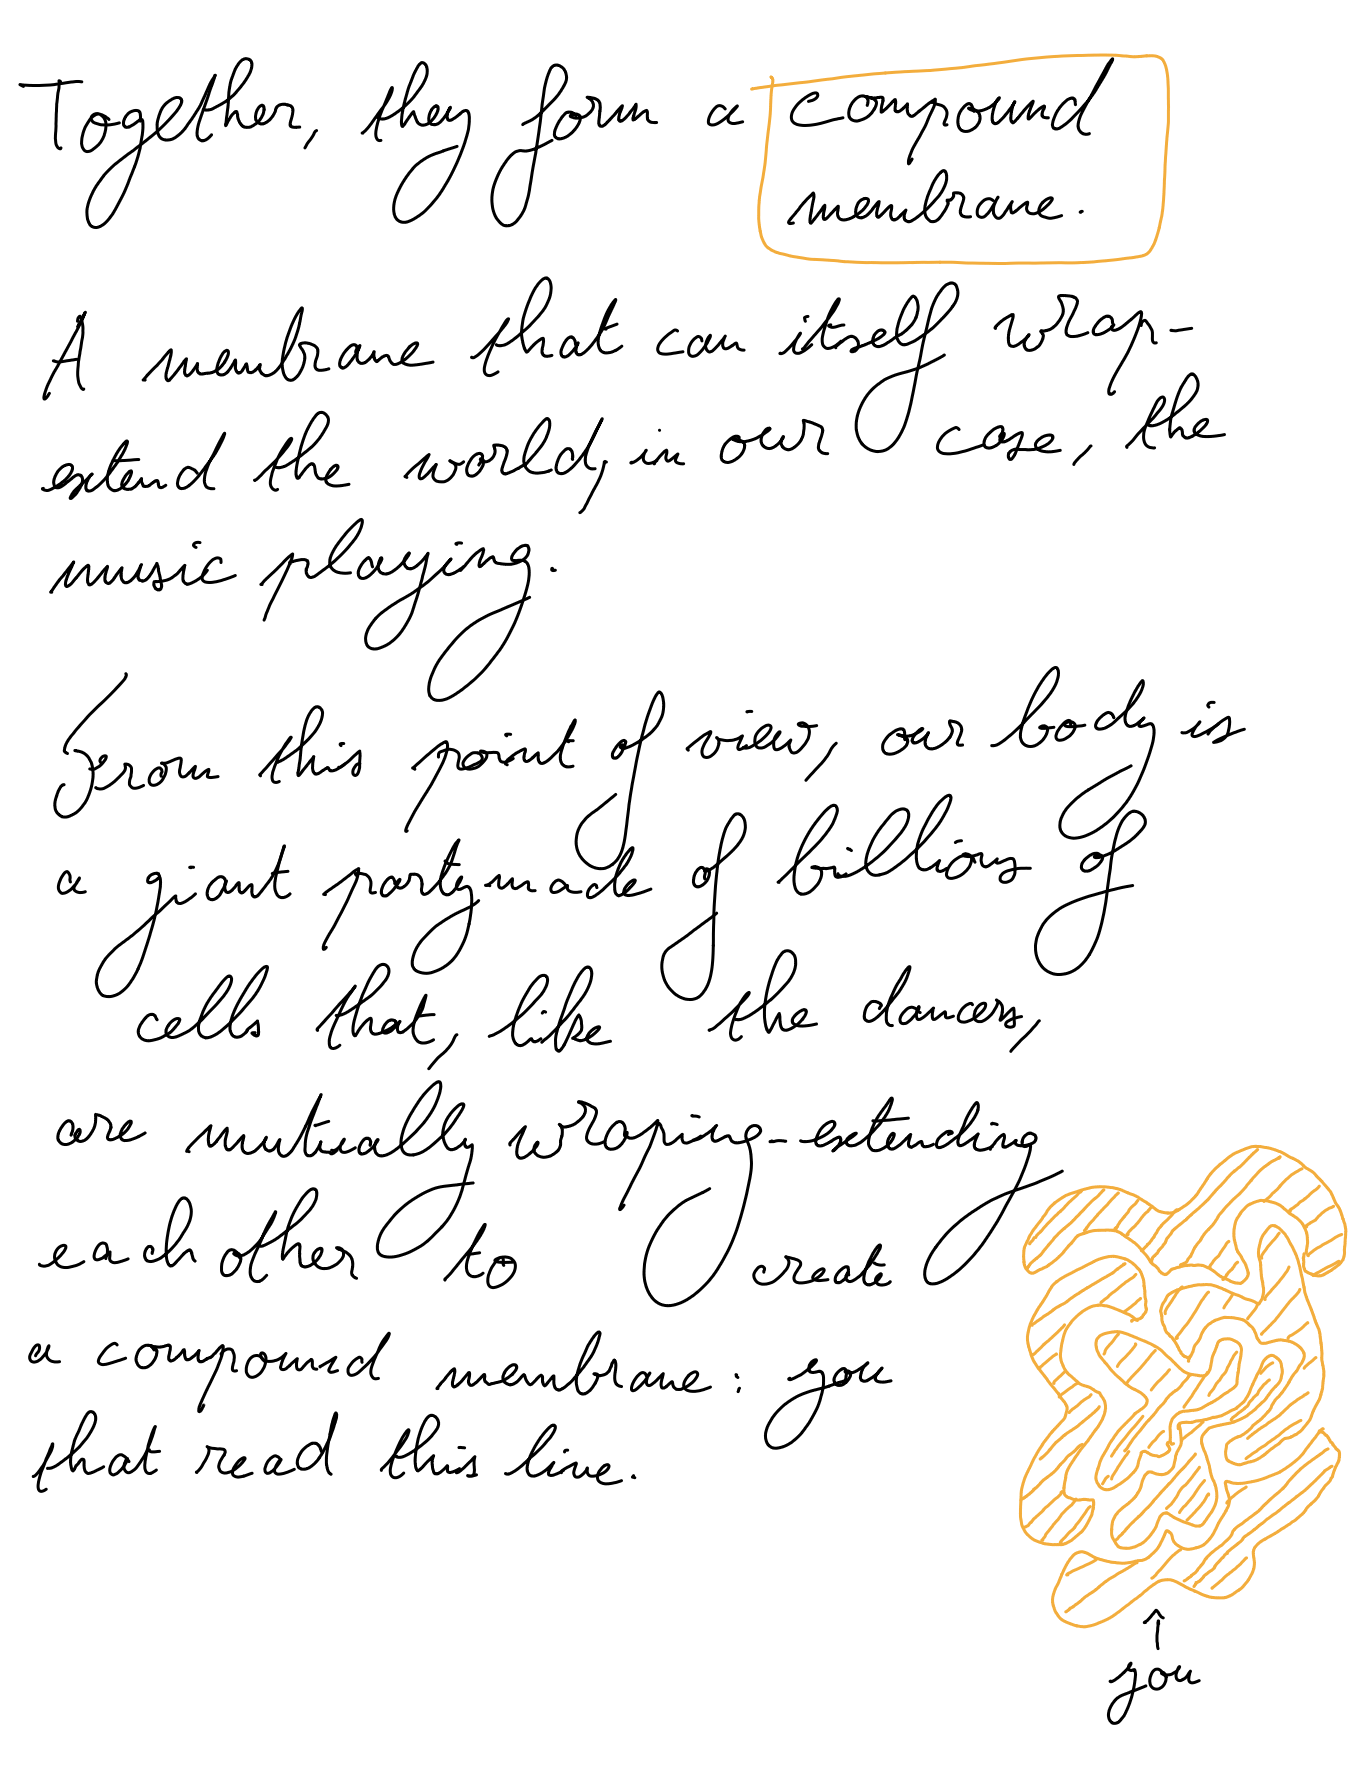 Together, they form a compound
membrane.
A membrane that can itself wrap-
extend the world, in our case, the
music playing.
From this point of view, our body is
a giant party made of billions of
cells that, like the dancers,
are mutually wraping-extending
each other to create
a compound membrane: you
that read this line.
you